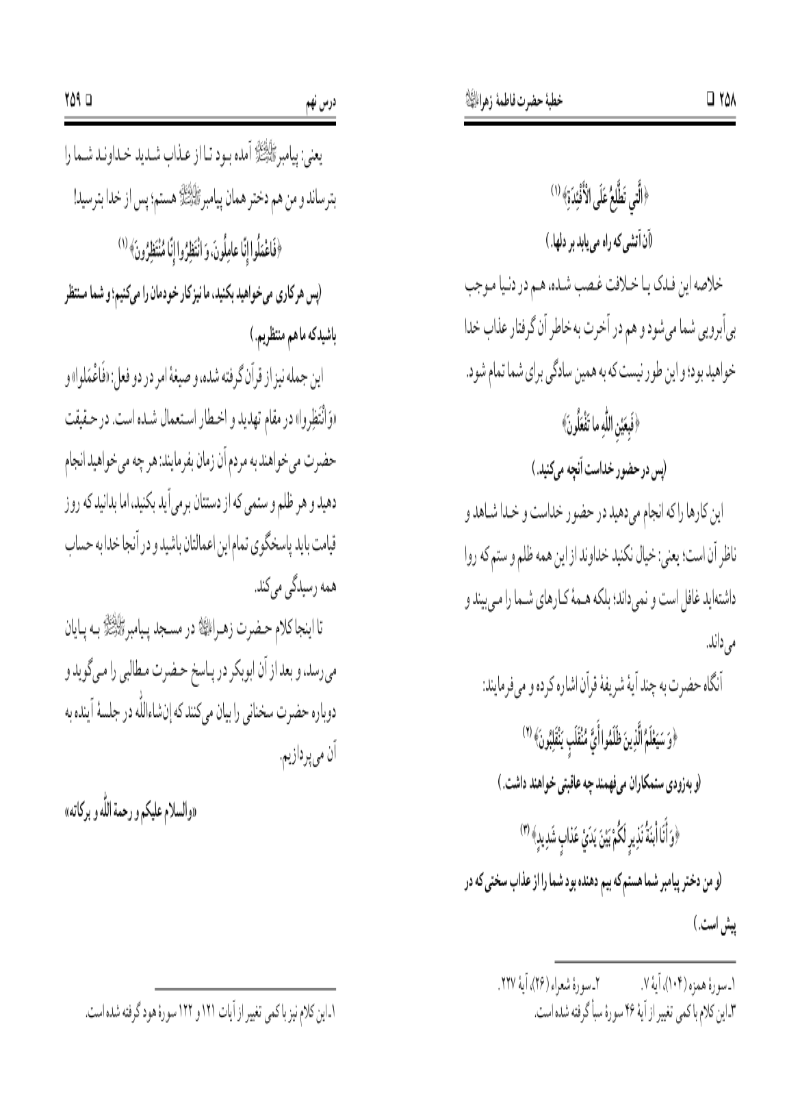 ۲۵۸ ❑ خطبهٔ حضرت فاطمهٔ زهرا
﴿الَّتي تَطَّلِعُ عَلَى الْأَفْئِدَةِ﴾(۱)
(آن آتشی که راه می‌یابد بر دلها.)
خلاصه این فدک یـا خـلافت غـصب شـده، هـم در دنـیا مـوجب
بی‌آبرویی شما می‌شود و هم در آخرت به‌خاطر آن گرفتار عذاب خدا
خواهید بود؛ و این طور نیست که به همین سادگی برای شما تمام شود.
﴿فَبِعَيْنِ اللهِ ما تَفْعَلُونَ﴾
(پس در حضور خداست آنچه می‌کنید.)
این کارها را که انجام می‌دهید در حضور خداست و خـدا شـاهد و
ناظر آن است؛ یعنی: خیال نکنید خداوند از این همه ظلم و ستم که روا
داشته‌اید غافل است و نمی‌داند؛ بلکه هـمهٔ کـارهای شـما را مـی‌بیند و
می‌داند.
آنگاه حضرت به چند آیهٔ شریفهٔ قرآن اشاره کرده و می‌فرمایند:
﴿وَ سَيَعْلَمُ الَّذِينَ ظَلَمُوا أَيَّ مُنْقَلَبٍ يَنْقَلِبُونَ﴾(۲)
(و به‌زودی ستمکاران می‌فهمند چه عاقبتی خواهند داشت.)
﴿وَ أَنَا ابْنَةُ نَذِيرٍ لَكُمْ بَيْنَ يَدَيْ عَذابٍ شَدِيدٍ﴾(۳)
(و من دختر پیامبر شما هستم که بیم دهنده بود شما را از عذاب سختی که در
پیش است.)
۱ـ سورهٔ همزه (۱۰۴)، آیهٔ ۷. ۲ـ سورهٔ شعراء (۲۶)، آیهٔ ۲۲۷.
۳ـ این کلام با کمی تغییر از آیهٔ ۴۶ سورهٔ سبأ گرفته شده است.
درس نهم ❑ ۲۵۹
یعنی: پیامبرﷺ آمده بـود تـا از عـذاب شـدید خـداونـد شـما را
بترساند و من هم دختر همان پیامبرﷺ هستم؛ پس از خدا بترسید!
﴿فَاعْمَلُوا إِنَّا عامِلُونَ، وَ انْتَظِرُوا إِنَّا مُنْتَظِرُونَ﴾(۱)
(پس هر کاری می‌خواهید بکنید، ما نیز کار خودمان را می‌کنیم؛ و شما مـنتظر
باشید که ما هم منتظریم.)
این جمله نیز از قرآن گرفته شده، و صیغهٔ امر در دو فعل: «فَاعْمَلوا» و
«وَ انْتَظِروا» در مقام تهدید و اخـطار اسـتعمال شـده است. در حـقیقت
حضرت می‌خواهند به مردم آن زمان بفرمایند: هر چه می‌خواهید انجام
دهید و هر ظلم و ستمی که از دستتان برمی‌آید بکنید، اما بدانید که روز
قیامت باید پاسخگوی تمام این اعمالتان باشید و در آنجا خدا به حساب
همه رسیدگی می‌کند.
تا اینجا کلام حـضرت زهـرا در مسـجد پـیامبرﷺ بـه پـایان
می‌رسد، و بعد از آن ابوبکر در پـاسخ حـضرت مـطالبی را مـی‌گوید و
دوباره حضرت سخنانی را بیان می‌کنند که إن‌شاءالله در جلسهٔ آینده به
آن می‌پردازیم.
«والسلام علیکم و رحمة الله و برکاته»
۱ـ این کلام نیز با کمی تغییر از آیات ۱۲۱ و ۱۲۲ سورهٔ هود گرفته شده است.